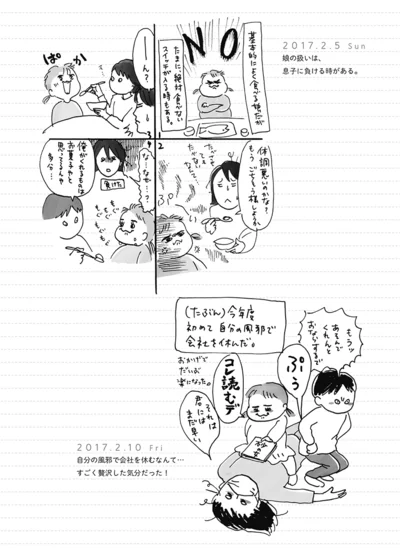 2017.2.5 Sun
娘の扱いは、
息子に負ける時がある。
基本的によく食べる娘だが
NO
たまに、絶対食べない
スイッチが入る時もある。
体調悪いのかな?
もうごちそう様しようか
たべなさい
ん?
ぱかっ
な…なぜ…?
負けた
俺がくれるものは
お菓子やと
思ってるんちゃう
多分…
もぐ
もぐ
もぐ
(たぶん)今年度
初めて自分の風邪で
会社を休んだ。
おかげで
だいぶ
楽になった。
コレ読むデ
それは
君には
まだ早い
ぷぅ
もうッ
あそんで
くれんと
おならするで
2017.2.10 Fri
自分の風邪で会社を休むなんて…
すごく贅沢した気分だった!